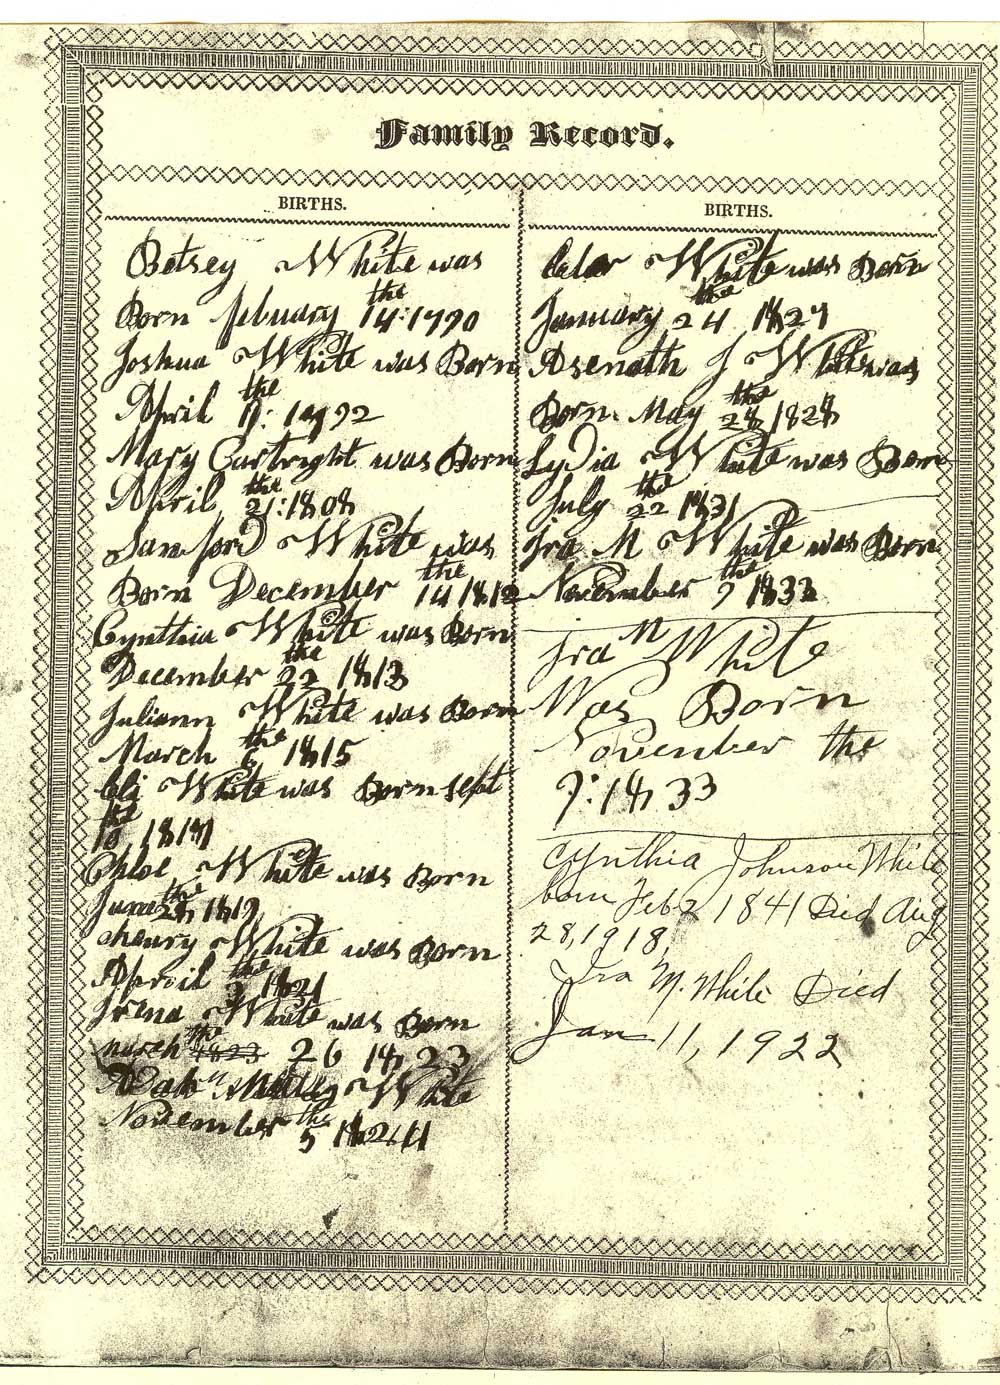 Family Record.
BIRTHS.
Betsey White was
Born february 14the: 1790
Joshua White was Born
April the 1792
Mary Cartright was Born
April 21the: 1808
Samford White was
Born December 14the 1812
Cynthia White was Born
December 22the 1813
Juliann White was Born
March 6the 1815
Eli White was Born sept
the 10 1817
Chloe White was Born
June the 1819
henry White was Born
Aproil the 1821
Irena White was Born
march the 1823 26 1823
White
November the 5 182
BIRTHS.
White was Born
January 24the 1827
Asenath J White was
Born May 28the 1828
Lydia White was Born
July 22the 1831
Ira M White was Born
November 9the 1833
Ira M White
Was Born
November the
9: 1833
Cynthia Johnson White
born Feb 2 1841 Died Aug
28, 1918,
Ira M. White Died
Jan 11, 1922